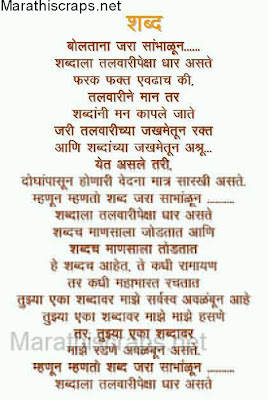 Marathiscraps.net
शब्द
बोलताना जरा सांभाळून......
शब्दाला तलवारीपेक्षा धार असते
फरक फक्त एवढाच की,
तलवारीने मान तर
शब्दांनी मन कापले जाते
जरी तलवारीच्या जखमेतून रक्त
आणि शब्दांच्या जखमेतून अश्रू...
येत असले तरी,
दोघांपासून होणारी वेदना मात्र सारखी असते.
म्हणून म्हणतो शब्द जरा सांभाळून ............
शब्दाला तलवारीपेक्षा धार असते
शब्दच माणसाला जोडतात आणि
शब्दच माणसाला तोडतात
हे शब्दच आहेत, ते कधी रामायण
तर कधी महाभारत रचतात
तुझ्या एका शब्दावर माझे सर्वस्व अवळंबून आहे
तुझ्या एका शब्दावर माझे माझे हसणे
तर, तुझ्या एका शब्दावर
माझे रडणे अवळबून असते.
Marathiscraps.net
म्हणून म्हणतो शब्द जरा सांभाळून ............
शब्दाला तलवारीपेक्षा धार असते